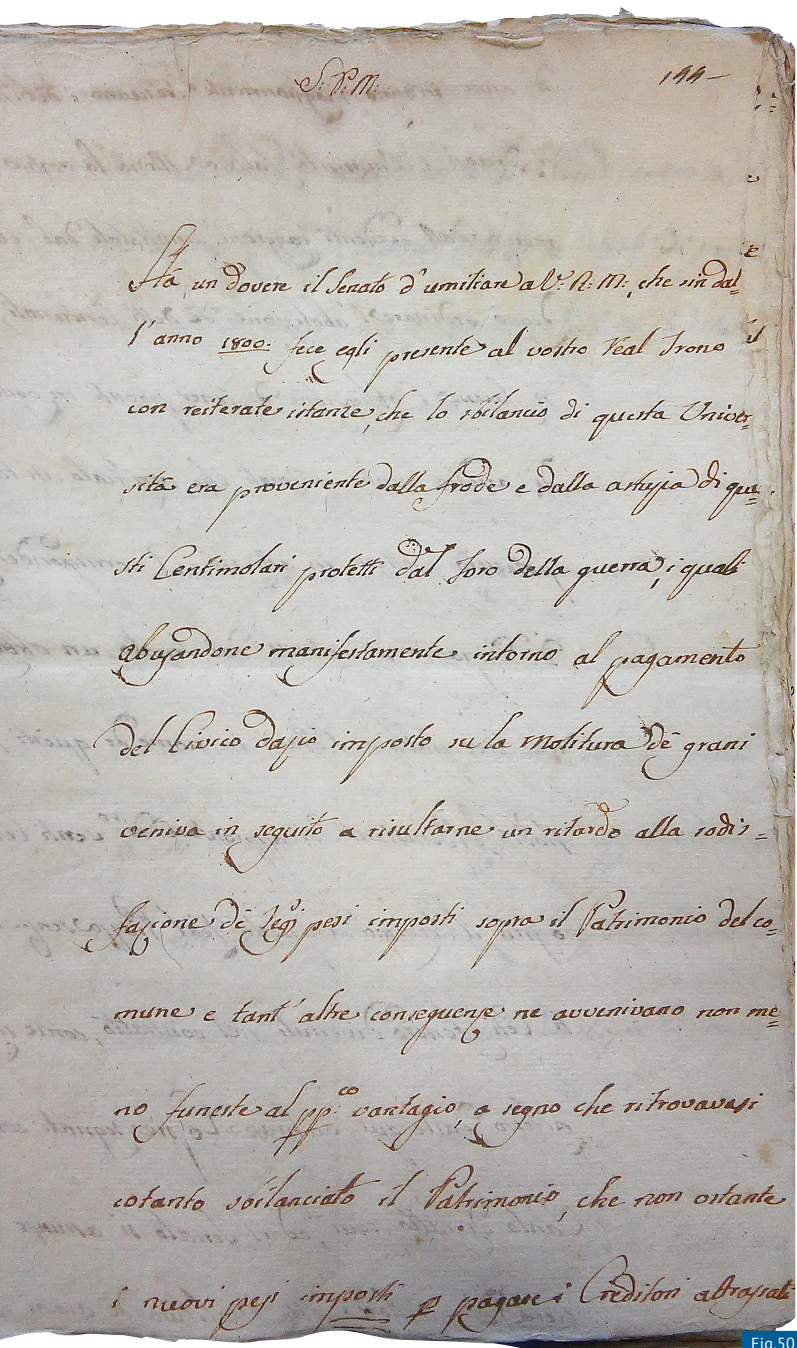 S: P: M: 144
Hà un dovere il Senato d'umiliare a V: R: M:, che sin dal=
l'anno 1800: fece egli presente al vostro Real Trono
con reiterate istanze, che lo sbilancio di questa Univer=
sità era proveniente dalla frode e dalla astuzia di que=
sti Centimolari protetti dal foro della guerra, i quali
abusandone manifestamente intorno al pagamento
del Civico dazio imposto su la molitura dè grani
veniva in seguito a risultarne un ritardo alla sodis=
fazione dè Regj pesi imposti sopra il Patrimonio del co=
mune e tant'altre conseguenze ne avvenivano non me=
no funeste al pp:co vantagio, a segno che ritrovavasi
cotanto sbilanciato il Patrimonio, che non ostante
i nuovi pesi imposti p pagare i Creditori atrassati
Fig.50